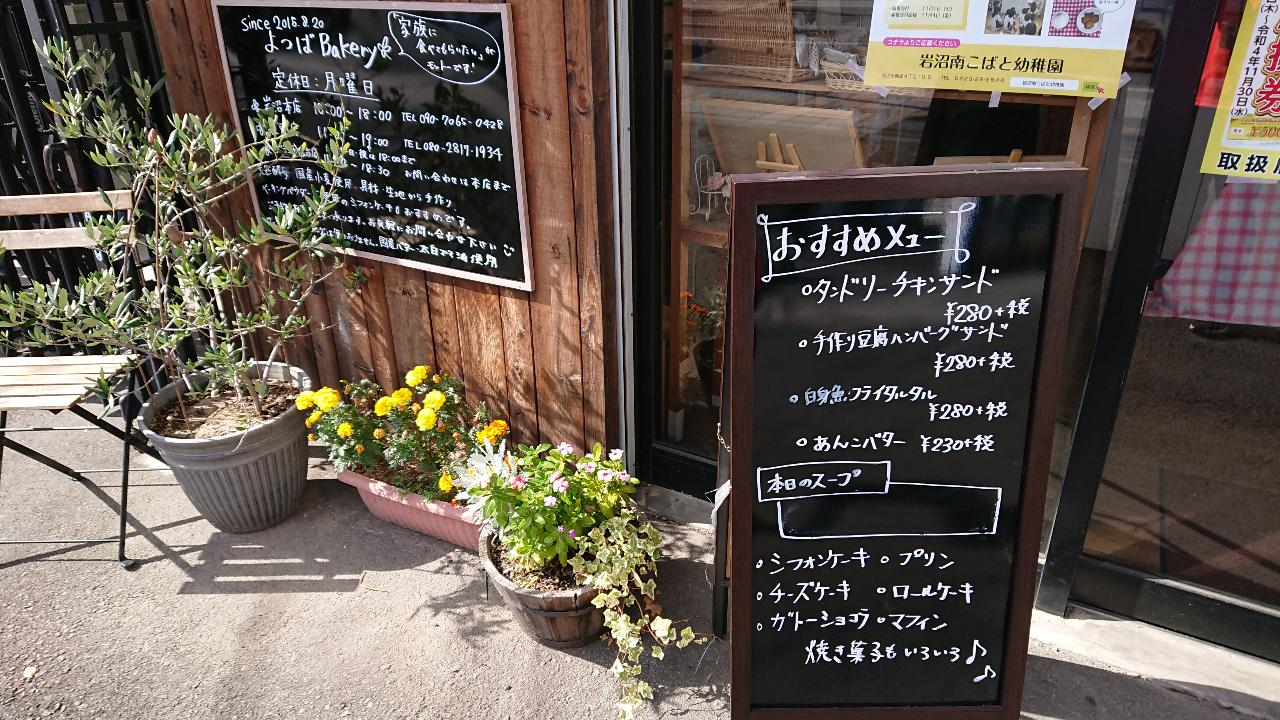 since 2016.8.20
よつば Bakery
家族に
食べてもらいたい、が
モットーです!
定休日:月曜日
岩沼本店 10:00〜18:00 TEL 090-7065-0428
19:00 TEL 080-2817-1934
18:30 お問い合わせは本店まで
国産小麦使用 具材・生地から手作り
シフォンケーキもおすすめです。
お気軽にお問い合わせ下さい
岩沼南こばと幼稚園
コチラよりご応募ください
令和4年11月30日(水)
取扱
おすすめメニュー
○タンドリーチキンサンド
¥280+税
○手作り豆腐ハンバーグサンド
¥280+税
○白身魚フライタルタル
¥280+税
○あんこバター ¥230+税
本日のスープ
○シフォンケーキ ○プリン
○チーズケーキ ○ロールケーキ
○ガトーショコラ ○マフィン
焼き菓子もいろいろ♪
♪